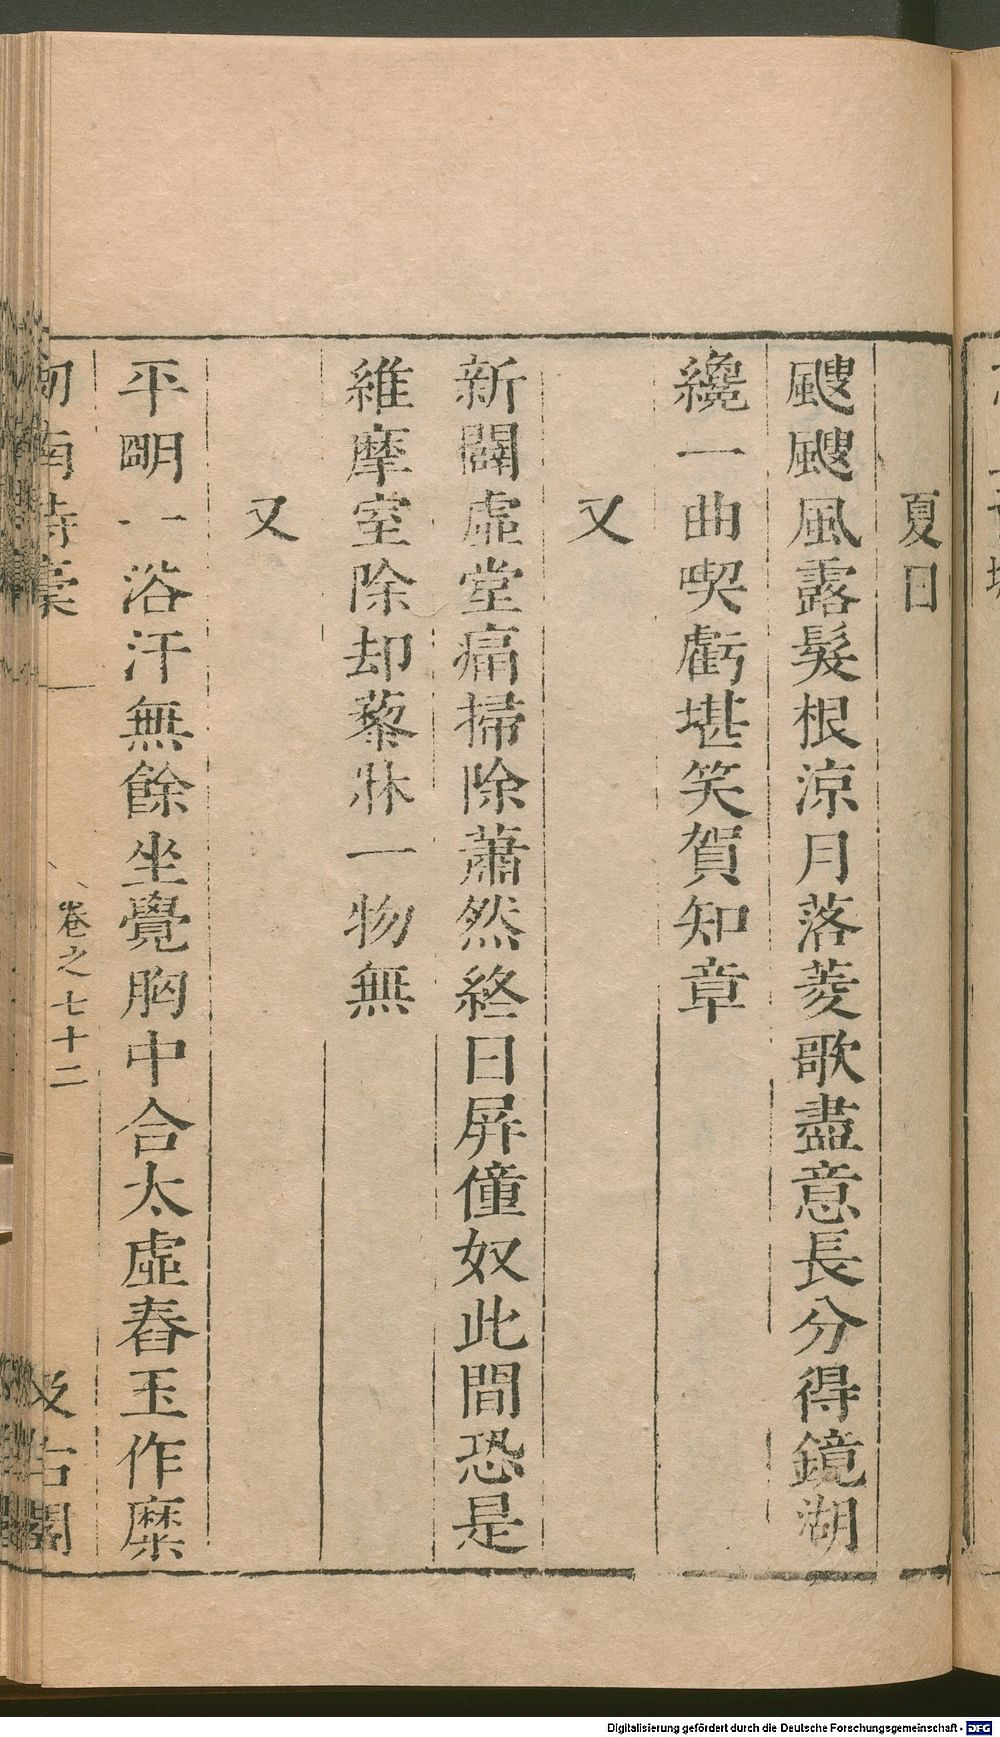 夏日
颼颼風露髮根涼月落菱歌盡意長分得鏡湖
纔一曲喫虧堪笑賀知章
又
新闢虛堂痛掃除蕭然終日屏僮奴此間恐是
維摩室除却藜牀一物無
又
平明一浴汗無餘坐覺胸中合太虛舂玉作糜
劍南詩稾
卷之七十二
汲古閣
Digitalisierung gefördert durch die Deutsche Forschungsgemeinschaft - DFG